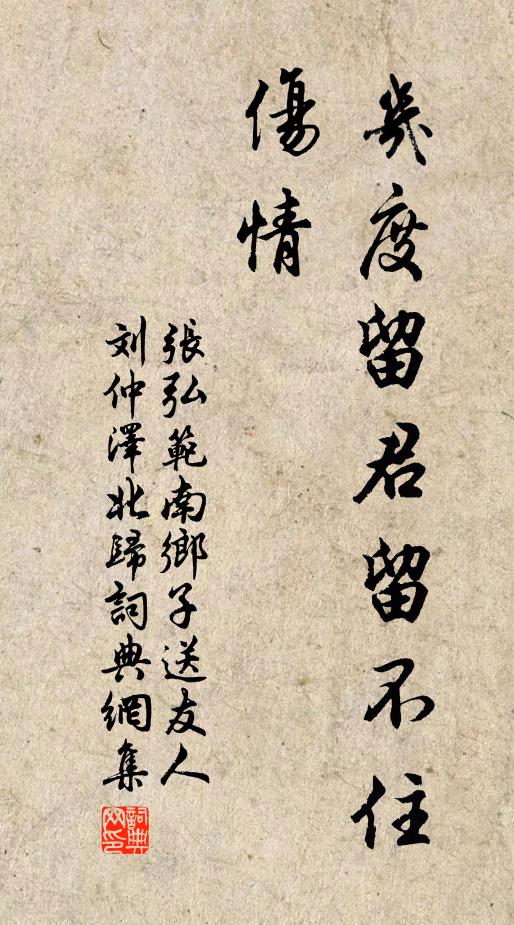 幾度留君留不住
傷情
張弘範南鄉子送友人
刘仲澤北歸詞典網集
詞典
网印